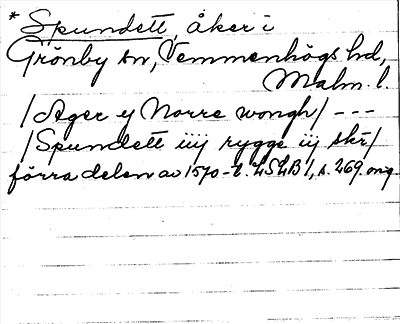 * Spundett, åker i
Grönby sn, Vemmenhögs hd,
Malm. l.
/Ager y Norre wongh/ ---
/Spundett iiij rygge iij skr/
förra delen av 1570-t. LSLB 1, s. 269. orig